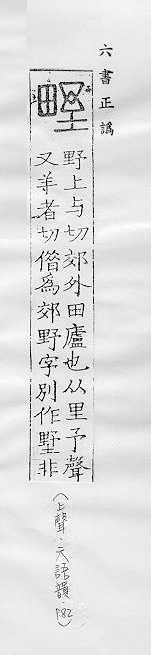 六書正譌
野上与切郊外田廬也从里予聲
又羊者切借為郊野字別作墅非
(上聲.六語韻.P.82)